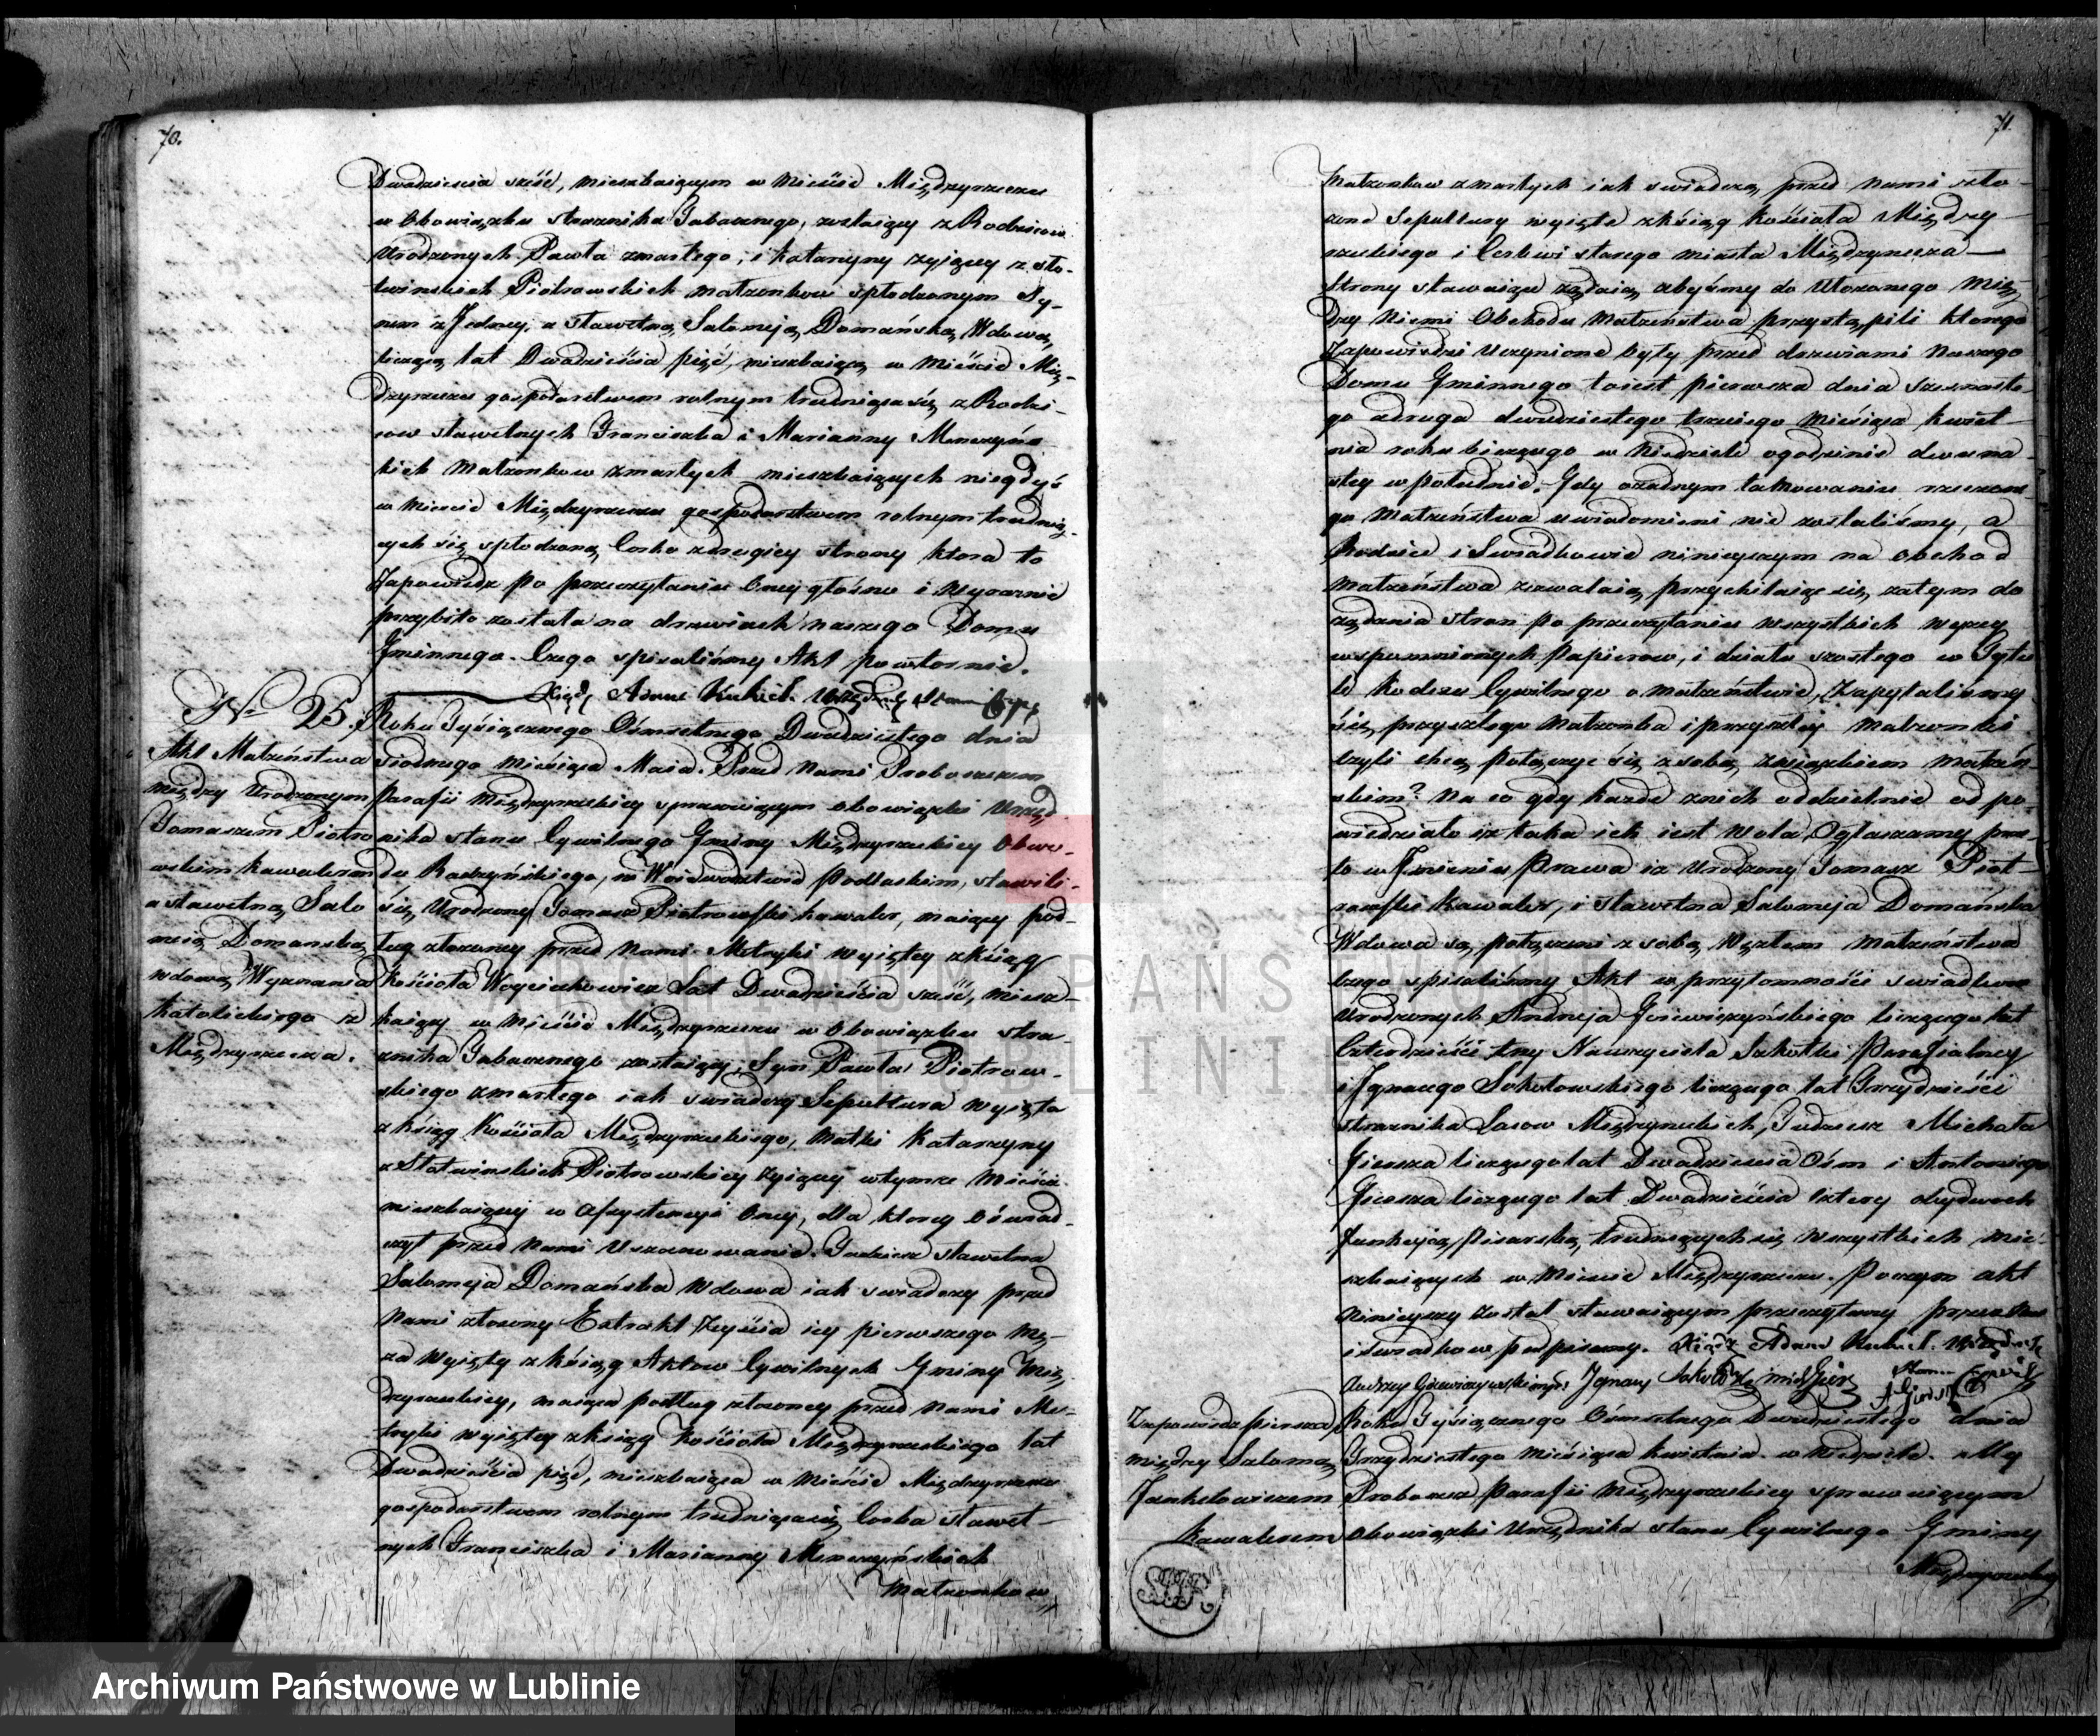 70.
Dwadzieścia sześć, mieszkaiącym w Mieście Międzyrzeczu
w Obowiązku strażnika Tabacznego, zostaiący z Rodziców
Urodzonych Pawła zmarłego, i Katarzyny żyiącey z Sło-
twinskich Piotrowskich Małżonków spłodzonym Sy-
nem z Jedney, a Sławetną Salomeją Domańską Wdową,
liczącą lat Dwadzieścia pięć, mieszkaiącą w Mieście Mię-
dzyrzeczu gospodarstwem rolnym trudniącą się z Rodzi-
ców sławetnych Franciszka i Marianny
kich Małżonkow zmarłych mieszkaiących niegdyś
w Mieście Międzyrzeczu gospodarstwem rolnym trudnią-
cych się spłodzoną Corko z drugiey strony ktora to
Zapowiedz po przeczytaniu Oney głośno i wyraznie
przybito została na drzwiach naszego Domu
Gminnego. Czego spisaliśmy Akt powtornie.
Xiądz Adam Kukiel. Urzędnik Stanu Cyw:
No 25.
Akt Małżeństwa
między Urodzonym
Tomaszem Piotro
wskim kawalerem
a sławetną Salo
meią Domanską
wdową Wyznania
Katolickiego z
Międzyrzecza.
Roku Tysiącznego Ośmsetnego Dwudziestego dnia
siodmego Miesiąca Maia. Przed Nami Proboszczem
Parafii Międzyrzeckiey sprawuiącym obowiązki Urzęd-
nika stanu Cywilnego Gminy Międzyrzeckiey Obwo-
du Radzyńskiego, w Woiewodztwie Podlaskim, stawili-
się Urodzony Tomasz Piotrowski kawaler, maiący pod-
ług złożoney przed Nami Metryki wyiętey z ksiąg
Kościoła Woyciechowicz Lat Dwadzieścia sześć, miesz-
kaiący w Mieście Międzyrzeczu w Obowiązku stra-
znika Tabacznego zostaiący, Syn Pawła Piotrow-
skiego zmarłego iak swiadczy Sepultura wyięta
z ksiąg Kościoła Międzyrzeckiego, Matki Katarzyny
z Słotwinskich Piotrowskiey żyiącey w tymże Mieście
mieszkaiącey w Assystencyi Oney, dla ktorey oświad-
czył przed Nami Uszanowanie. Tudziesz sławetna
Salomeja Domańska Wdowa iak swiadczy przed
Nami złożony Extrakt Zeyścia iey pierwszego Mę-
ża wyięty z ksiąg Aktow Cywilnych Gminy Mię-
dzyrzeckiey, maiąca podług złożoney przed Nami Me-
tryki wyiętey z ksiąg Kościoła Międzyrzeckiego lat
Dwadzieścia pięć, mieszkaiąca w Mieście Międzyrzeczu
gospodarstwem rolnym trudniąca się Corka sławet-
nych Franciszka i Marianny
Małżonkow
71.
Małżonkow zmarłych iak swiadczą przed Nami zło-
żone Sepultury wyięte z ksiąg Kościoła Między-
rzeckiego i Cerkwi starego miasta Międzyrzecza
Strony stawaiące żądaią abyśmy do Ułożonego Mię-
dzy Niemi Obchodu Małżeństwa przystąpili ktorego
Zapowiedzi Uczynione były przed drzwiami Naszego
Domu Gminnego toiest pierwsza dnia szesnaste-
go a druga dwudziestego trzeciego Miesiąca kwiet-
nia roku bieżącego w Niedziele o godzinie dwuna-
stey w południe. Gdy o żadnym tamowaniu rzeczone-
go Małżeństwa uwiadomieni nie zostaliśmy, a
Rodzice i Swiadkowie ninieyszym na obchod
Małżeństwa zezwalaią, przychilaiąc się zatym do
żądania stron po przeczytaniu wszystkich wyżey
wspomnionych papierow, i działu szostego w Tytu-
le Kodexu Cywilnego o Małżeństwie, Zapytaliśmy
się przyszłego Małżonka i przyszłey Małżonki
czyli chcą połączyć się z sobą Związkiem Małżeń-
skim? Na co gdy każde z nich oddzielnie odpo-
wiedziało iż taka ich iest wola, Ogłaszamy prze-
to w Imieniu Prawa iż Urodzony Tomasz Piot-
rowski kawaler, i Sławetna Salomeja Domańska
Wdowa są połączeni z sobą Węzłem Małżeństwa
Czego spisaliśmy Akt w przytomności swiadkow
Urodzonych Andrzeja liczącego lat
Czterdzieści trzy Nauczyciela Szkołki Parafialney
i Ignacego Sokołowskiego liczącego lat Trzydzieści
strażnika Lasow Międzyrzeckich, Tudziesz Michała
Giersza liczącego lat Dwadzieścia Ośm i Antoniego
Giersza liczącego lat Dwadzieścia cztery obydwoch
funkcyią Pisarską trudniących się wszystkich mie-
szkaiących w Mieście Międzyrzeczu. Poczym akt
ninieyszy został stawaiącym przeczytany przez Nas
i świadkow podpisany. Xiądz Adam Kukiel. Urzędnik
Stanu Cywil:
Andrzej Ignacy
Zapowiedz pierwsza
między Szlomą
Jankelowiczem
Kawalerem
Roku Tysiącznego Ośmsetnego Dwudziestego dnia
Trzydziestego Miesiąca kwietnia w Niedziele. My
Proboszcz Parafii Międzyrzeckiey sprawuiącym
obowiązki Urzędnika stanu Cywilnego Gminy
Międzyrzeckiey
ARCHIWUM PAŃSTWOWE
W LUBLINIE
Archiwum Państwowe w Lublinie